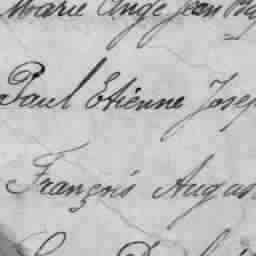 Marie Ange Jean
Paul Etienne Josep
François Augus